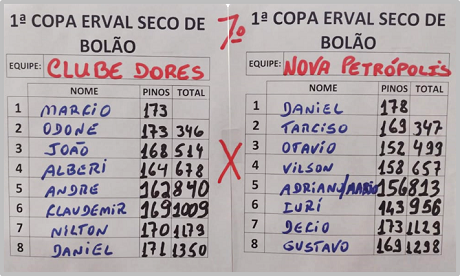 1ª COPA ERVAL SECO DE
BOLÃO
EQUIPE: CLUBE DORES
NOME PINOS TOTAL
1 MARCIO 173
2 ODONE 173 346
3 JOÃO 168 514
4 ALBERI 164 678
5 ANDRE 162 840
6 KLAUDEMIR 169 1009
7 NILTON 170 1179
8 DANIEL 171 1350
7º
X
1ª COPA ERVAL SECO DE
BOLÃO
EQUIPE: NOVA PETRÓPOLIS
NOME PINOS TOTAL
1 DANIEL 178
2 TARCISO 169 347
3 OTAVIO 152 499
4 VILSON 158 657
5 ADRIANO/MARIO 156 813
6 IURI 143 956
7 DECIO 173 1129
8 GUSTAVO 169 1298